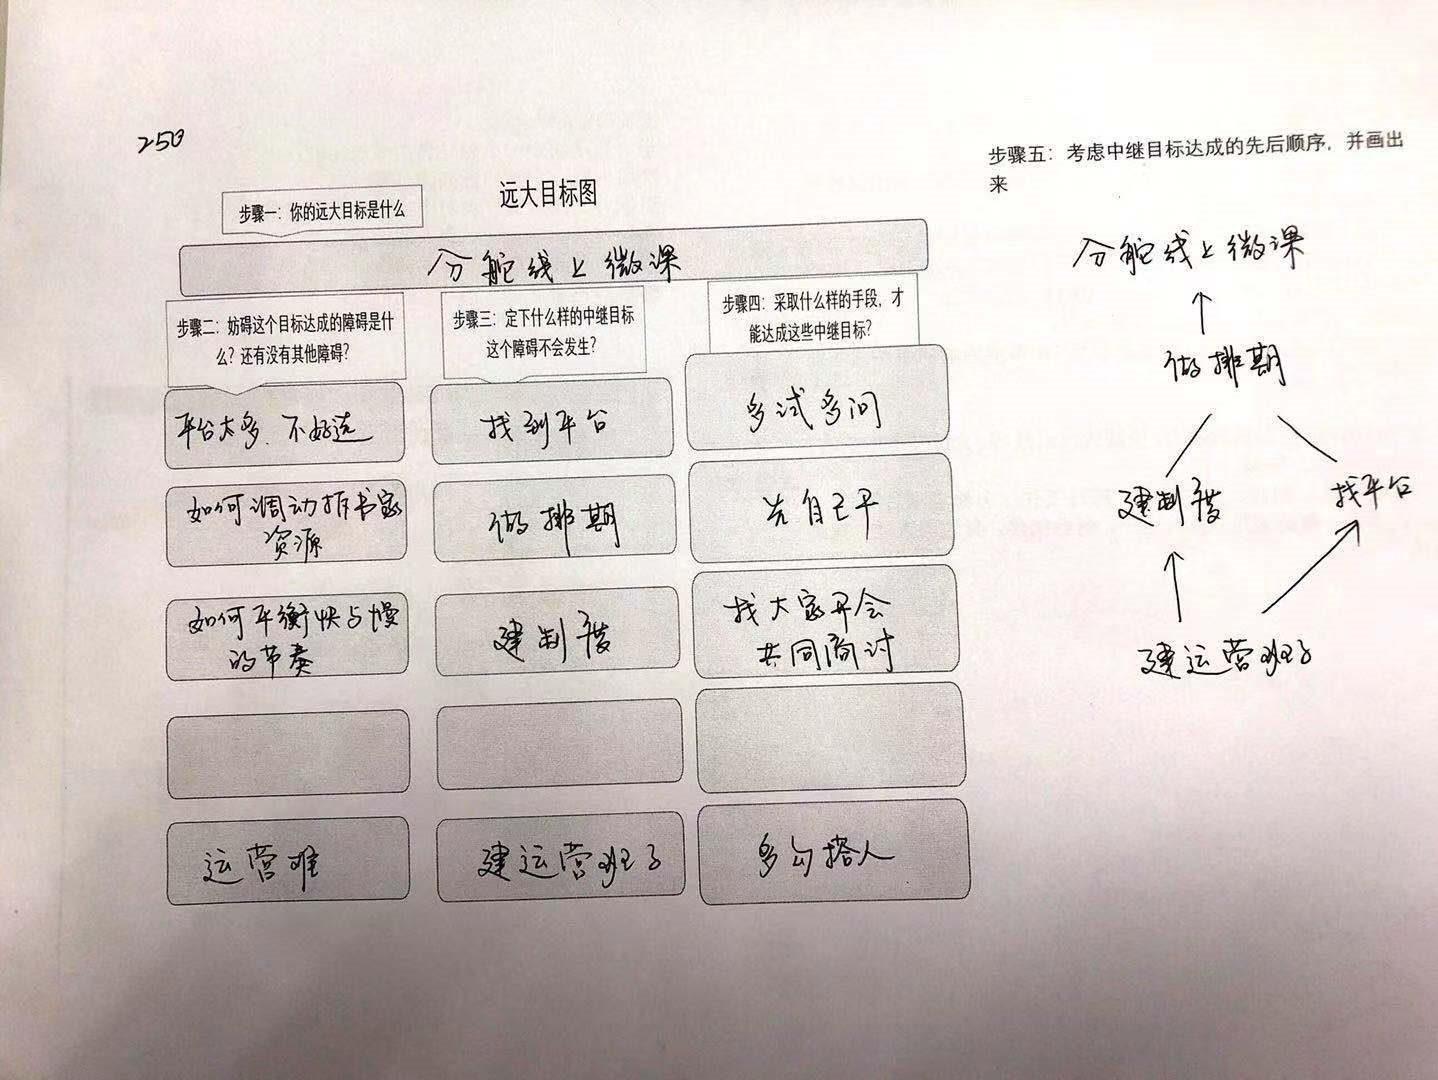 250
远大目标图
步骤一：你的远大目标是什么
分舵线上微课
步骤二：妨碍这个目标达成的障碍是什
么？还有没有其他障碍？
步骤三：定下什么样的中继目标
这个障碍不会发生？
步骤四：采取什么样的手段，才
能达成这些中继目标？
平台太多、不好选
找到平台
多试多问
如何调动拆书家
资源
做排期
先自己干
如何平衡快与慢
的节奏
建制度
找大家开会
共同商讨
运营难
建运营班子
多勾搭人
步骤五：考虑中继目标达成的先后顺序，并画出
来
分舵线上微课
做排期
建制度
找平台
建运营班子